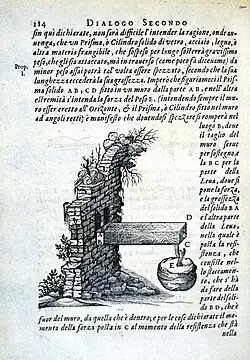 114 DIALOGO SECONDO
sin qui dichiarate, non sarà difficile l'intender la ragione, onde au-
uenga, che vn Prisma, ò Cilindro solido di vetro, acciaio, legno, ò
altra materia frangibile, che sospeso per lungo sosterrà grauissimo
peso, che gli sia attaccato, mà in trauerso (come poco fà diceuamo) da
minor peso assai potrà tal volta essere spezzato, secondo che la sua
lunghezza eccederà la sua grossezza. Imperò che figuriamoci il Pris-
Prop. ma solido AB, CD fitto in vn muro dalla parte AB, e nell'altra
I. estremità s'intenda la forza del Peso E. (intendendo sempre il mu-
ro esser eretto all'Orizonte, & il Prisma, ò Cilindro fitto nel muro
ad angoli retti) è manifesto che douendosi spezzare si romperà nel
luogo B, doue
il taglio del
muro serue
per sostegno, e
la BC per la
parte della
Leua, doue si
pone la forza,
e la grossezza
del solido BA
è l'altra parte
della Leua,
nella quale è
posta la resi-
stenza, che
consiste nel-
lo staccamen-
to, che s'hà
da fare della
parte del soli-
do BD, che è
A
B
D
C
E
fuor del muro, da quella che è dentro; e per le cose dichiarate il mo-
mento della forza posta in C al momento della resistenza che stà
nella